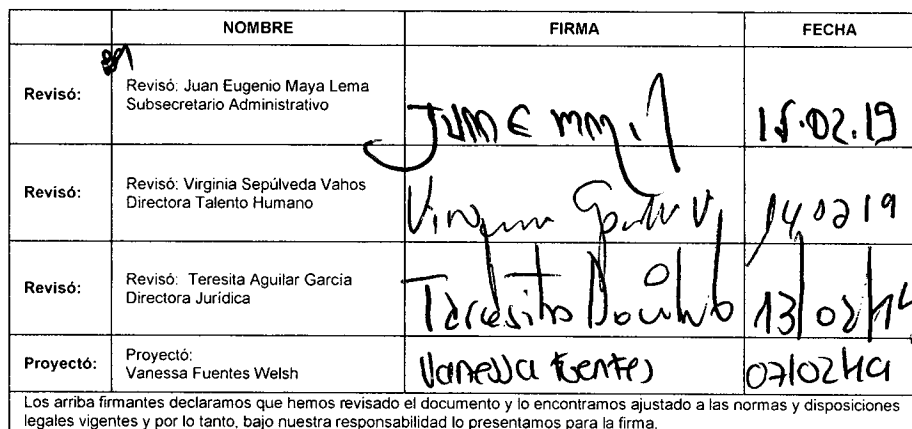 NOMBRE FIRMA FECHA
Revisó: Revisó: Juan Eugenio Maya Lema
Subsecretario Administrativo
15.02.19
Revisó: Revisó: Virginia Sepúlveda Vahos
Directora Talento Humano
14 02 19
Revisó: Revisó: Teresita Aguilar García
Directora Jurídica
Teresita 13/02/19
Proyectó: Proyectó:
Vanessa Fuentes Welsh
Vanessa Fuentes 07/02/19
Los arriba firmantes declaramos que hemos revisado el documento y lo encontramos ajustado a las normas y disposiciones
legales vigentes y por lo tanto, bajo nuestra responsabilidad lo presentamos para la firma.